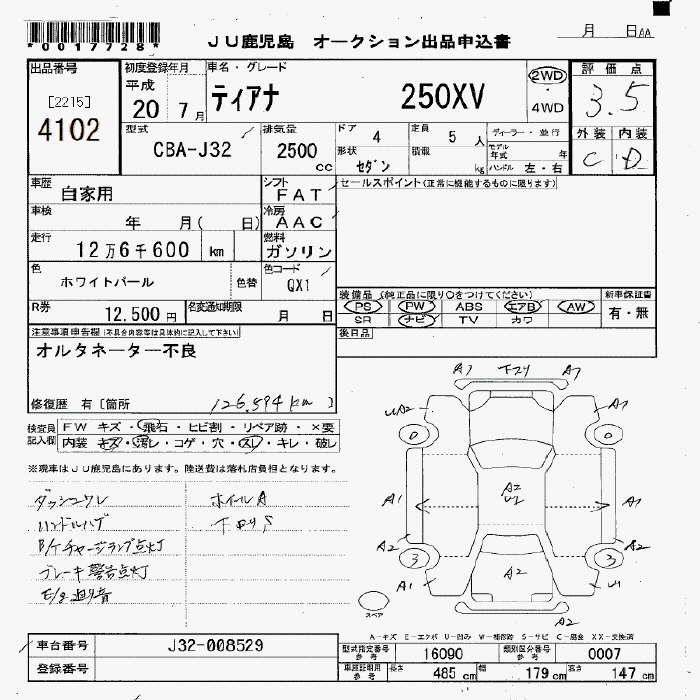 *0017728*
JU鹿児島 オークション出品申込書
月 日AA
出品番号
[2215]
4102
初度登録年月
平成
20 7月
車名・グレード
ティアナ 250XV
2WD
・
4WD
評価点
3.5
外装 内装
C D
型式
CBA-J32
排気量
2500
cc
ドア 4
定員 5 人
ディーラー・並行
形状
セダン
積載
kg
モデル
年式 年
ハンドル 左・右
車歴
自家用
シフト
FAT
セールスポイント(正常に機能するものに限ります)
車検
年 月( 日)
冷房
AAC
走行
12万6千600 km
燃料
ガソリン
色
ホワイトパール
色替
色コード
QX1
R券
12,500円
名変通知期限
月 日
装備品(純正品に限り○をつけてください)
PS PW ABS エアB AW
SR ナビ TV カワ
新車保証書
有・無
後日品
注意事項申告欄(不具合内容等は具体的に記入して下さい)
オルタネーター不良
修復歴 有[箇所
126,594km ]
検査員
記入欄
FW キズ・飛石・ヒビ割・リペア跡・×要
内装 キズ・汚レ・コゲ・穴・スレ・キレ・破レ
※現車はJU鹿児島にあります。陸送費は落札店負担となります。
ダッシュワレ
ハンドルハゲ
B/Tチャージランプ点灯
ブレーキ警告点灯
E/g廻り音
ホイールA
下回りS
A1 下回り A1
UA2 A1
0 0
A1 A2
U2 A1
A2 A2
3 3
A1 A2 U1
A2
スペア
A-キズ E-エクボ U-凹み W-補修跡 S-サビ C-腐食 XX-交換済
車台番号
J32-008529
登録番号
型式指定番号
参考
16090
類別区分番号
参考
0007
車庫証明用
参考
長さ 485 cm
幅 179 cm
高さ 147 cm